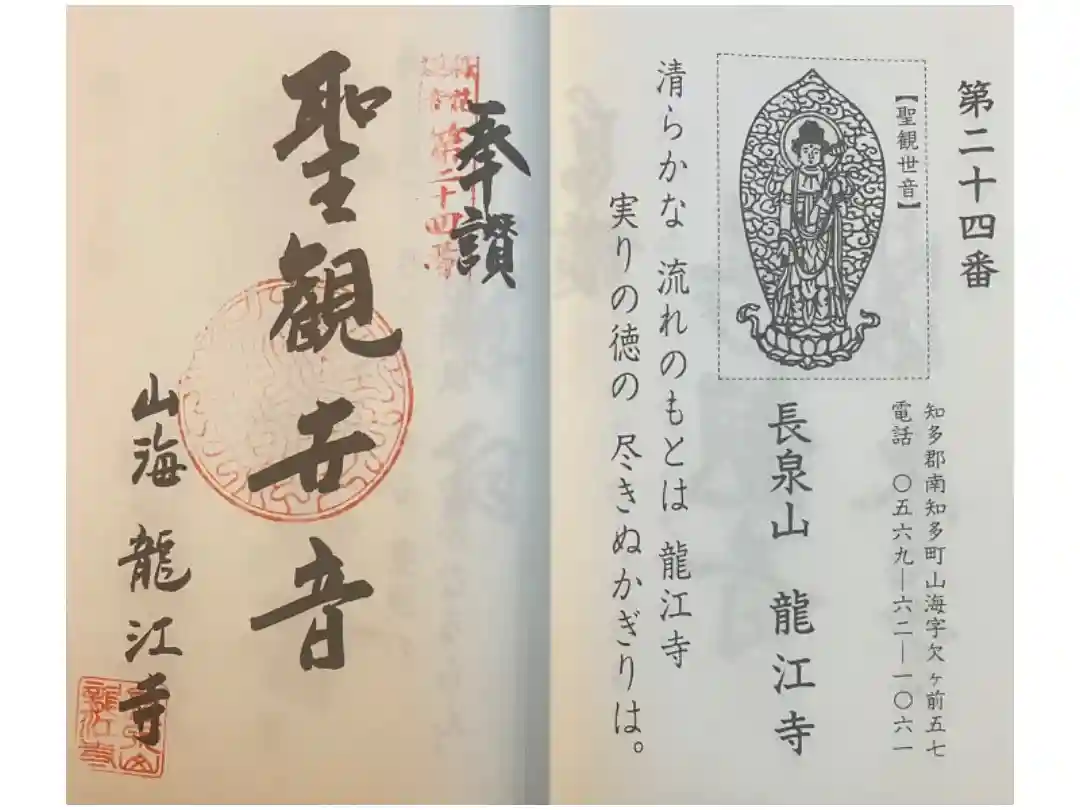 第二十四番
【聖観世音】
知多郡南知多町山海字欠ヶ前五七
電話 〇五六九―六二―一〇六一
長泉山 龍江寺
清らかな 流れのもとは 龍江寺
実りの徳の 尽きぬかぎりは。
奉讃
第二十四番
聖観世音
山海 龍江寺
龍江寺